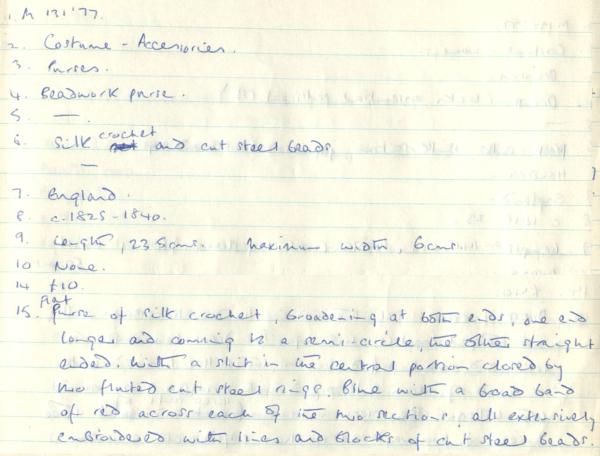 1. M 131'77.
2. Costume - Accessories.
3. Purses.
4. Beadwork purse.
5. —.
6. Silk crochet and cut steel beads.
—
7. England.
8. c.1825 - 1840.
9. Length, 23.5cms. Maximum width, 6cms.
10. None.
14. £10.
15. Flat Purse of silk crochet, broadening at both ends, one end
longer and coming to a semi-circle, the other straight
ended. With a slit in the central portion closed by
two fluted cut steel rings. Blue with a broad band
of red across each of the two sections, all extensively
embroidered with lines and blocks of cut steel beads.